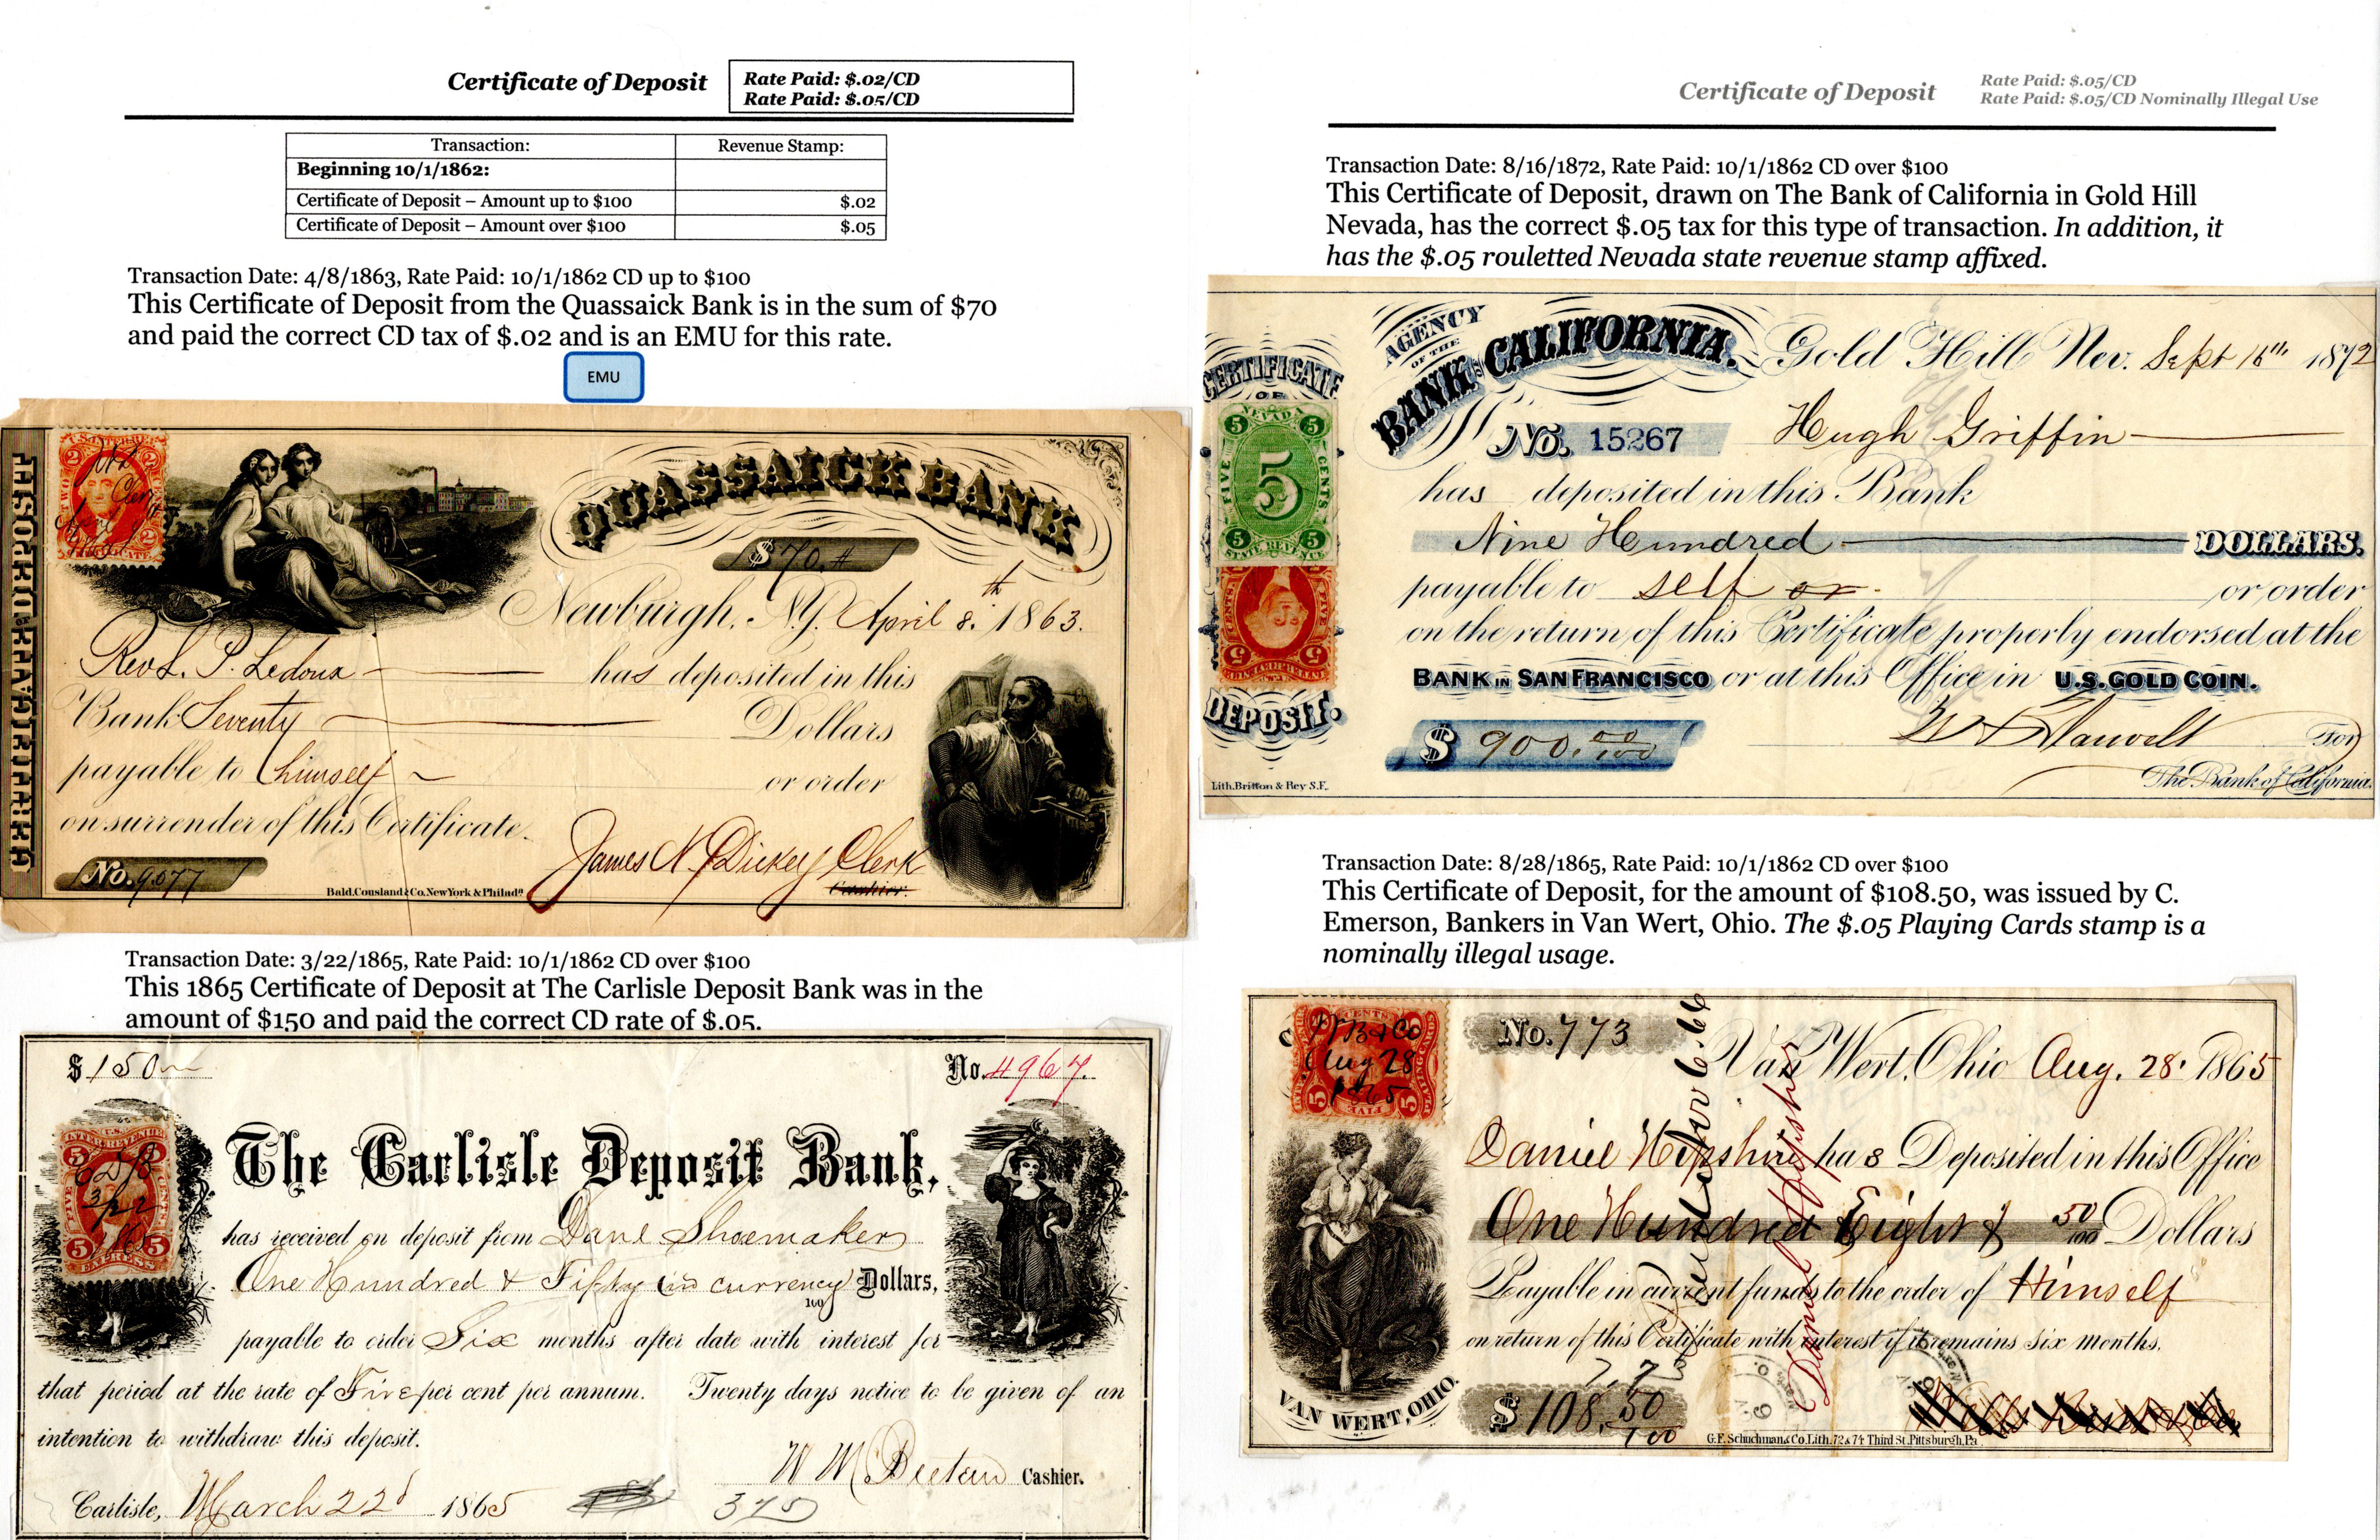 Certificate of Deposit
Rate Paid: $.02/CD
Rate Paid: $.05/CD
Transaction: Revenue Stamp:
Beginning 10/1/1862:
Certificate of Deposit – Amount up to $100 $.02
Certificate of Deposit – Amount over $100 $.05
Transaction Date: 4/8/1863, Rate Paid: 10/1/1862 CD up to $100
This Certificate of Deposit from the Quassaick Bank is in the sum of $70
and paid the correct CD tax of $.02 and is an EMU for this rate.
EMU
QUASSAICK BANK
$70.
Newburgh, N.Y. April 8.th 1863.
Rev L. P. Ledoux has deposited in this
Bank Seventy Dollars
payable to himself or order
on surrender of this Certificate.
James N. Dickey Clerk
Cashier.
No. 9.077
Bald, Cousland & Co. New York & Philada.
Transaction Date: 3/22/1865, Rate Paid: 10/1/1862 CD over $100
This 1865 Certificate of Deposit at The Carlisle Deposit Bank was in the
amount of $150 and paid the correct CD rate of $.05.
$150
No. 4967.
U.S.
INTER. REVENUE
5 5
FIVE CENTS
3/22
1865
5 5
EXPRESS
The Carlisle Deposit Bank,
has received on deposit from Dane Shoemaker
One Hundred & Fifty in currency Dollars,
100
payable to order Six months after date with interest for
that period at the rate of Five per cent per annum. Twenty days notice to be given of an
intention to withdraw this deposit.
W M Beetem Cashier.
Carlisle, March 22d 1865
375
Certificate of Deposit
Rate Paid: $.05/CD
Rate Paid: $.05/CD Nominally Illegal Use
Transaction Date: 8/16/1872, Rate Paid: 10/1/1862 CD over $100
This Certificate of Deposit, drawn on The Bank of California in Gold Hill
Nevada, has the correct $.05 tax for this type of transaction. In addition, it
has the $.05 rouletted Nevada state revenue stamp affixed.
CERTIFICATE
OF
DEPOSIT.
NEVADA
5 5
FIVE 5 CENTS
5 5
STATE REVENUE
AGENCY
OF THE
BANK OF CALIFORNIA.
Gold Hill Nev. Sept 16th 1872
No. 15267 Hugh Griffin
has deposited in this Bank
Nine Hundred DOLLARS.
payable to self or or order
on the return of this Certificate properly endorsed at the
BANK IN SAN FRANCISCO or at this Office in U.S. GOLD COIN.
$ 900.00/100
For
The Bank of California.
Lith. Britton & Rey S.F.
Transaction Date: 8/28/1865, Rate Paid: 10/1/1862 CD over $100
This Certificate of Deposit, for the amount of $108.50, was issued by C.
Emerson, Bankers in Van Wert, Ohio. The $.05 Playing Cards stamp is a
nominally illegal usage.
Aug 28
1865
No. 773
Van Wert, Ohio Aug. 28. 1865
Daniel Hipshire has Deposited in this Office
One Hundred Eight & 50/100 Dollars
Payable in current funds to the order of Himself
on return of this Certificate with interest if it remains six months.
Daniel Hipshire
VAN WERT, OHIO.
$108.50/100
G.F. Schuchman & Co. Lith. 72 & 74 Third St. Pittsburgh, Pa.